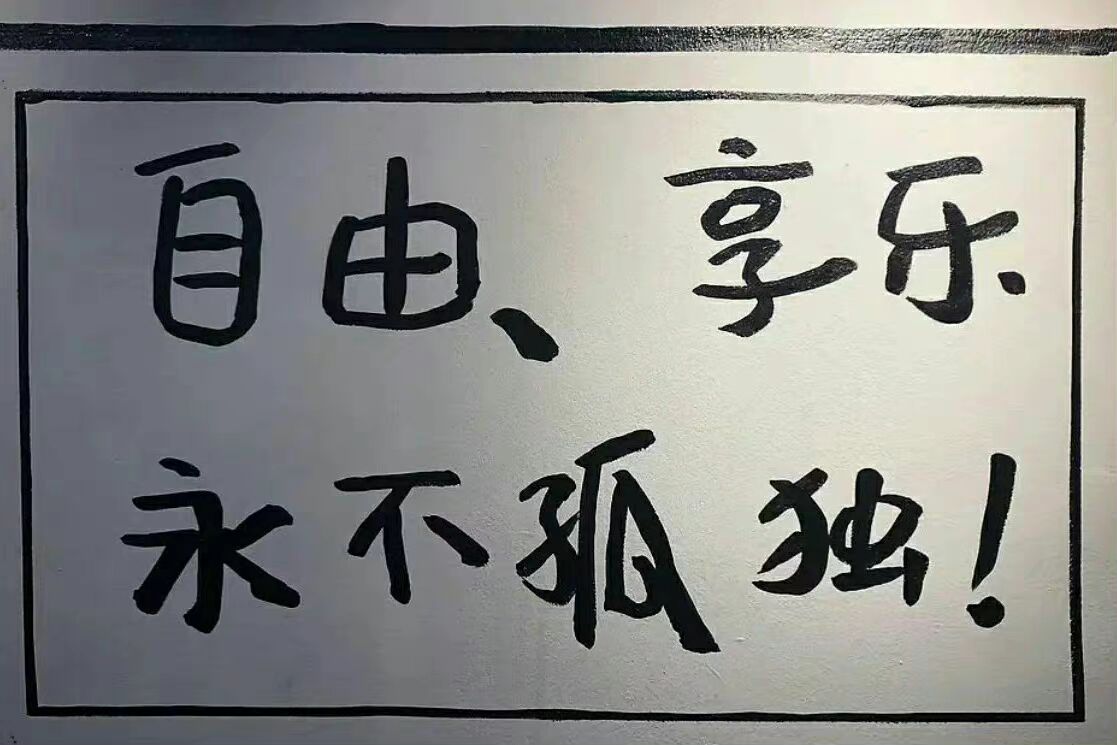 自由、享乐
永不孤独！